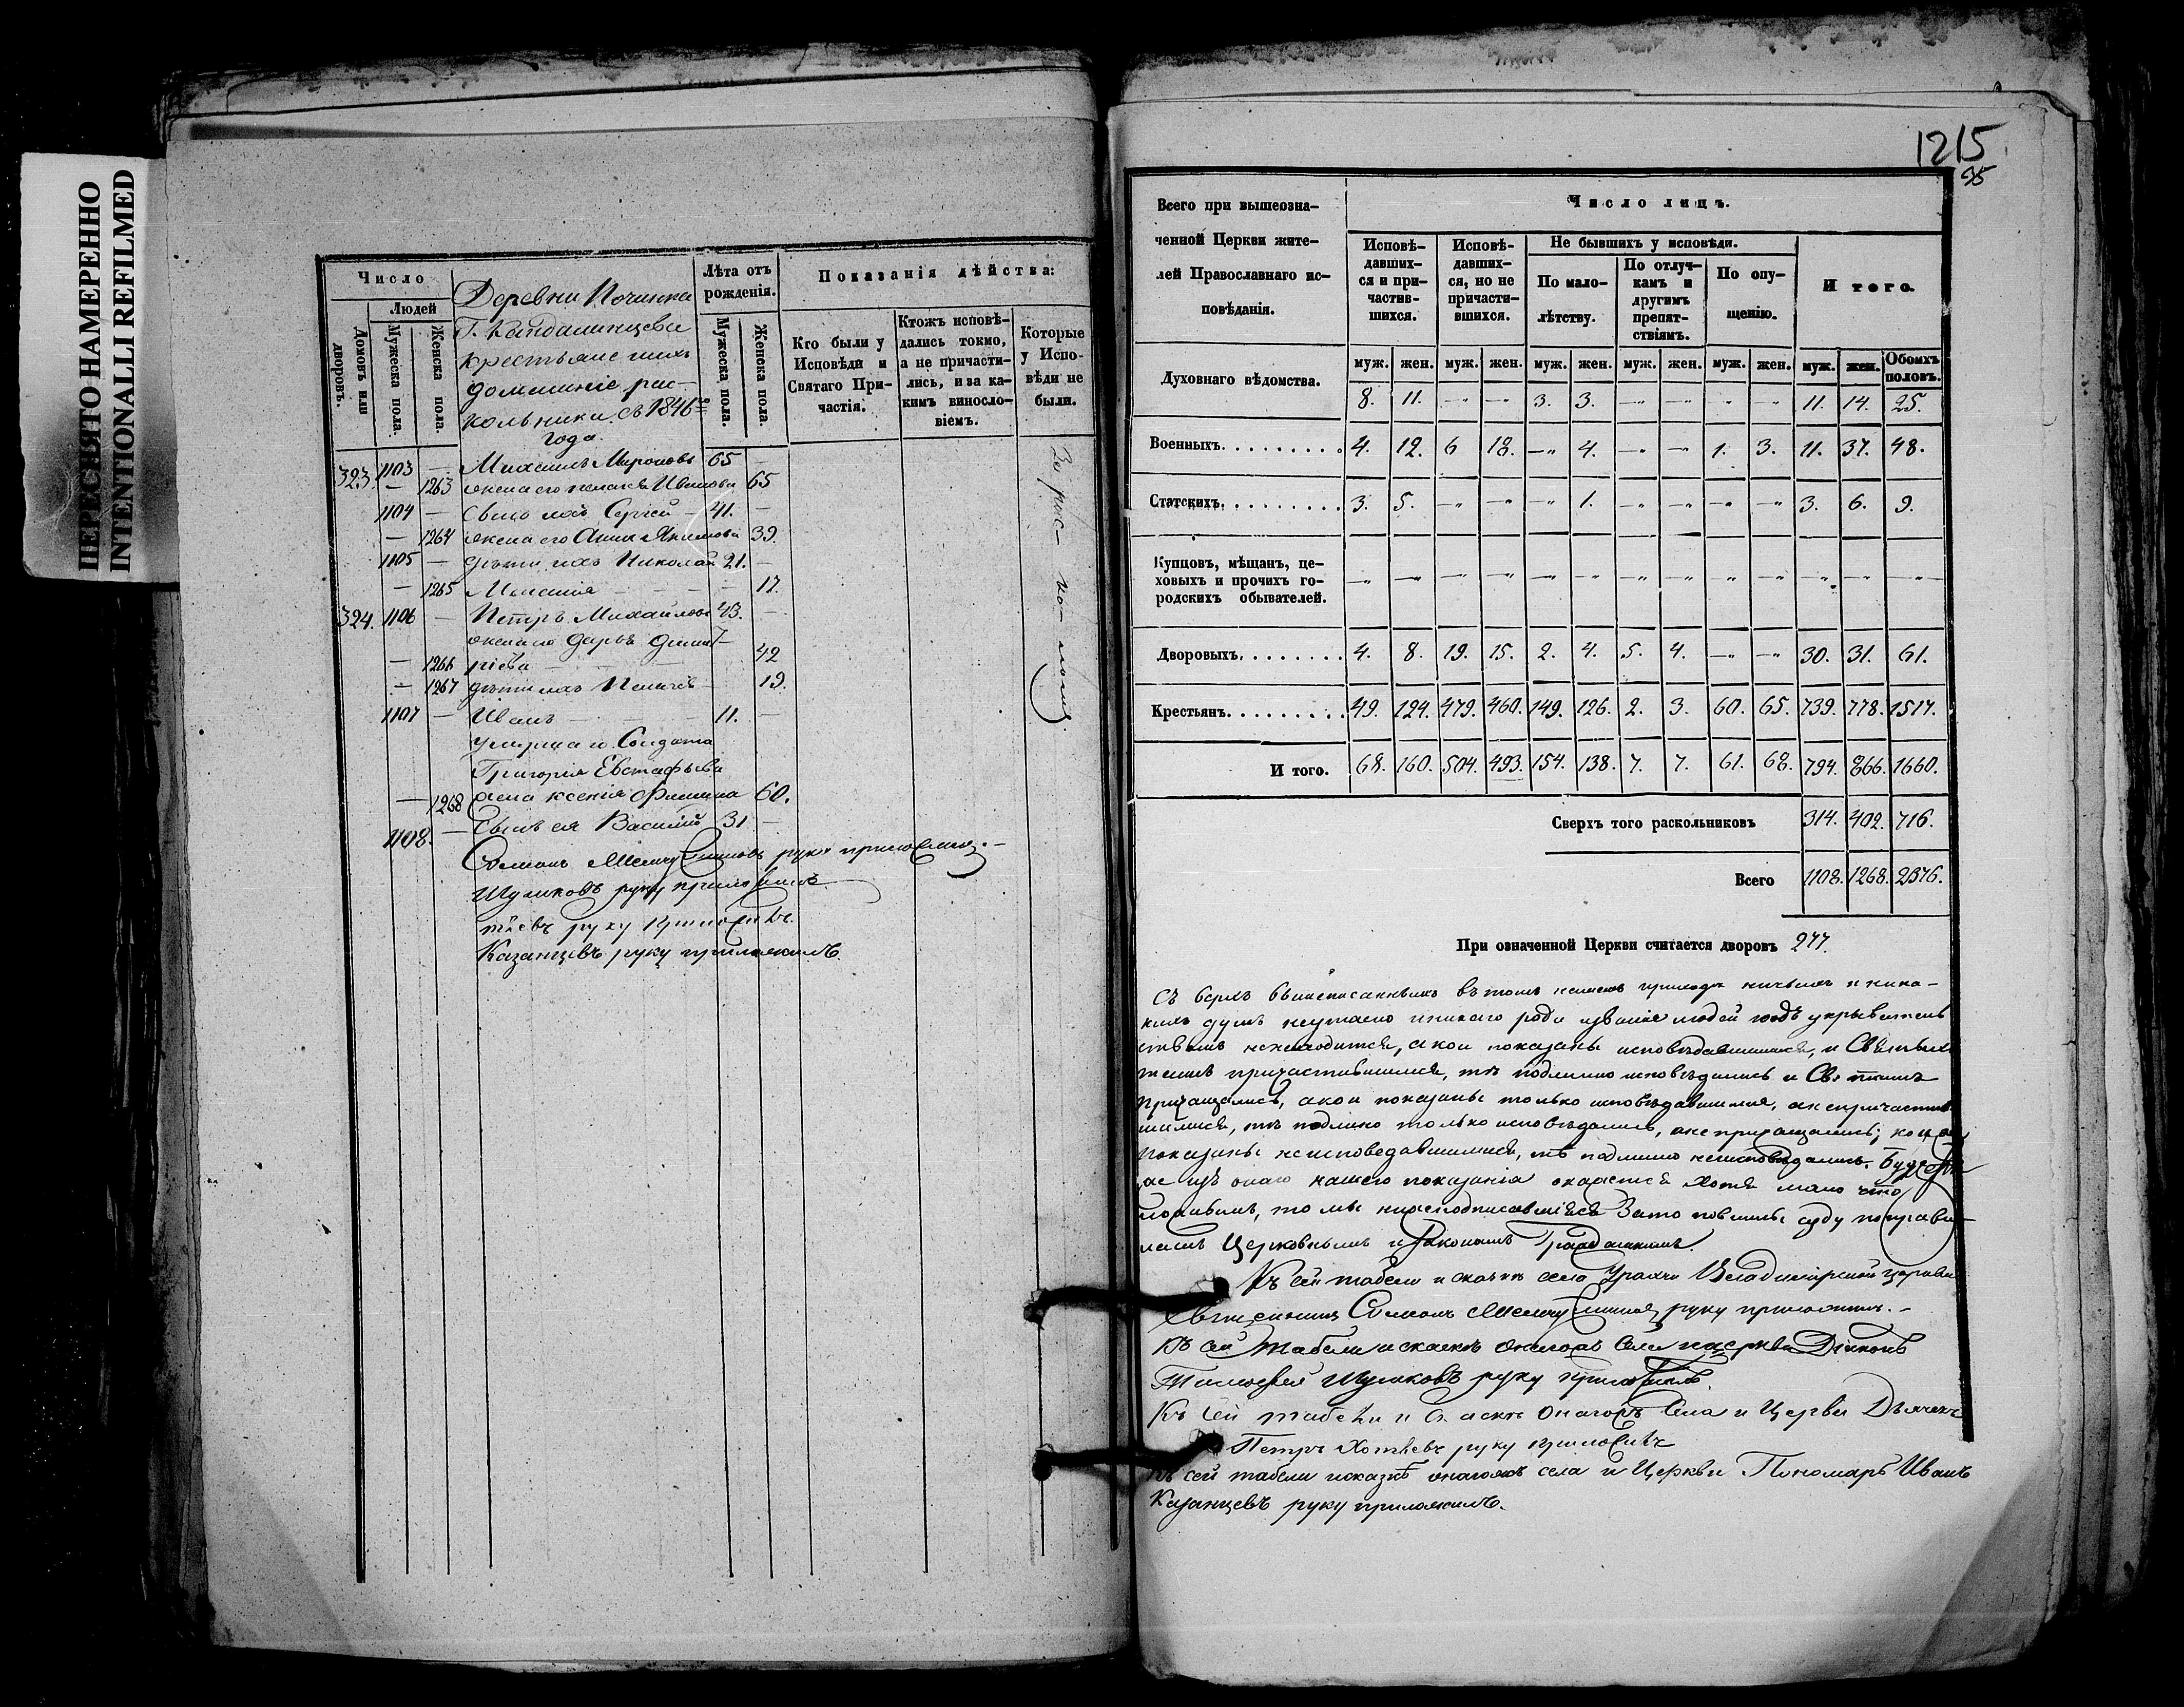 ПЕРЕСНЯТО НАМЕРЕННО
INTENTIONALLI REFILMED
Число
Людей
Домовъ или дворовъ.
Мужеска пола.
Женска пола.
Деревни Починка
Г.
крестьяне ихъ
домашніе рас-
кольники. съ 1846го
года.
Лѣта отъ рожденія.
Мужеска пола.
Женска пола.
Показанія дѣйства:
Кто были у Исповѣди и Святаго Причастія.
Ктожъ исповѣдались токмо, а не причастились, и за какимъ винословіемъ.
Которые у Исповѣди не были.
За рас-ко-ломъ.
323. 1103 — Михаилъ Мироновъ 65 —
— 1263 жена его Пелагея Иванова 65
1104 — Сынъ ихъ Сергей — 41. —
— 1264 жена его Анна Якимова 39.
1105 — дѣти ихъ Николай 21. —
— 1265 — — — 17.
324. 1106 — Петръ Михайловъ 43. —
жена его Дарья Димит-
— 1266 ріева — — — 42
— 1267 дѣти ихъ — 19.
1107 — Иванъ — — — 11. —
умершаго Солдата
Григорія Евстафьева
— 1268 жена Ксенія Фомина 60.
1108. — Сынъ ея Василій 31 —
Симонъ руку приложилъ. —
Шумковъ руку приложилъ
тѣевъ руку приложилъ.
Казанцевъ руку приложилъ.
1215
95
Всего при вышеозна-
ченной Церкви жите-
лей Православнаго ис-
повѣданія.
Число лицъ.
Исповѣдавших-ся и при-частив-шихся.
Исповѣ-давших-ся, но не причасти-вшихся.
Не бывшихъ у исповѣди.
По мало-лѣтству.
По отлуч-камъ и другимъ препят-ствіямъ.
По опу-щенію.
И того.
муж. жен. муж. жен. муж. жен. муж. жен. муж. жен. муж. жен. Обоихъ половъ.
Духовнаго вѣдомства. 8. 11. —„ —„ 3. 3. —„ —„ „ —„ 11. 14. 25.
Военныхъ. . . . . . . . . . 4. 12. 6 18. —„ 4. —„ —„ 1. 3. 11. 37. 48.
Статскихъ. . . . . . . . . . 3. 5. —„ —„ —„ 1. —„ —„ —„ —„ 3. 6. 9.
Купцовъ, мѣщанъ, це-
ховыхъ и прочихъ го-
родскихъ обывателей. —„ —„ —„ —„ —„ —„ —„ —„ —„ —„ —„ —„ —„
Дворовыхъ. . . . . . . . 4. 8. 19. 15. 2. 4. 5. 4. —„ —„ 30. 31. 61.
Крестьянъ. . . . . . . . . 49. 124. 479. 460. 149. 126. 2. 3. 60. 65. 739. 778. 1517.
И того. 68. 160. 504. 493. 154. 138. 7. 7. 61. 68. 794. 866. 1660.
Сверхъ того раскольниковъ 314. 402. 716.
Всего 1108. 1268. 2376.
При означенной Церкви считается дворовъ 277.
Съ вышеписанныхъ въ томъ нашемъ приходѣ ничьихъ и ника-
кихъ душъ неутаено и никаго рода и званіе людей подъ укрыватель
ствомъ ненаходится, а кои показаны исповѣдавшимися, и Святыхъ
таинъ причастившимися, тѣ подлинно исповѣдались и Св. таинъ
причащались, а кои показаны только исповѣдавшимися, а непричастив
шимися, тѣ подлино только исповѣдались, а не причащались; кои
показаны неисповедавшимися, тѣ подлинно неисповѣдались. Буде
же изъ онаго нашего показанія окажется хотя мало что
ложнымъ, то мы нижеподписавшіеся За то повинны суду по прави-
ламъ Церковнымъ и Законамъ Гражданскимъ.
Къ сей табели и скаскѣ села Владимірской церкви
Священникъ Симонъ руку приложилъ. —
Къ сей Табели и скаскѣ онагожъ Села и церкви Діаконъ
Тимофей Шумковъ руку приложилъ.
Къ сей табели и скаскѣ Онагожъ Села и Церкви Дьячекъ
Петръ Хотѣевъ руку приложилъ
Къ сей табели и сказкѣ онагожъ села и Церкви Пономарь Иванъ
Казанцевъ руку приложилъ.